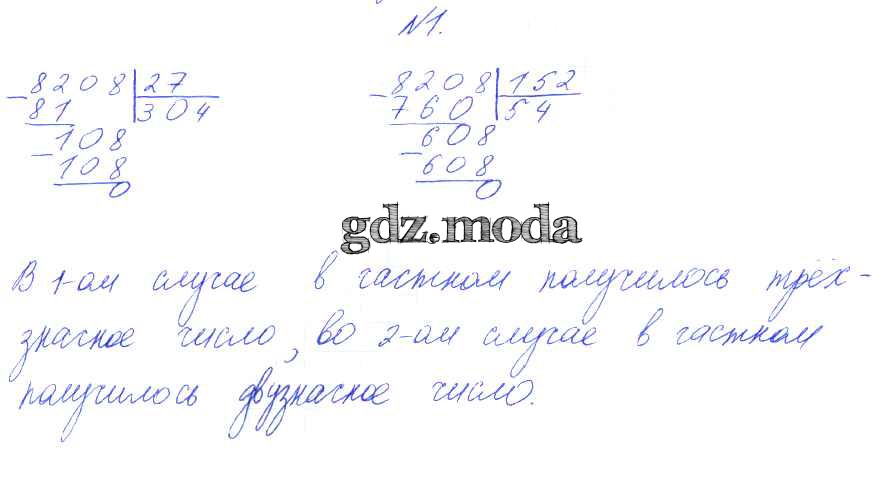 №1.
8208 | 27
81 | 304
108
108
0
8208 | 152
760 | 54
608
608
0
gdz.moda
В 1-ом случае в частном получилось трёх-
значное число, во 2-ом случае в частном
получилось двузначное число.